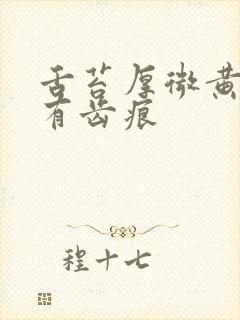 舌苔厚微黄
有齿痕
程十七